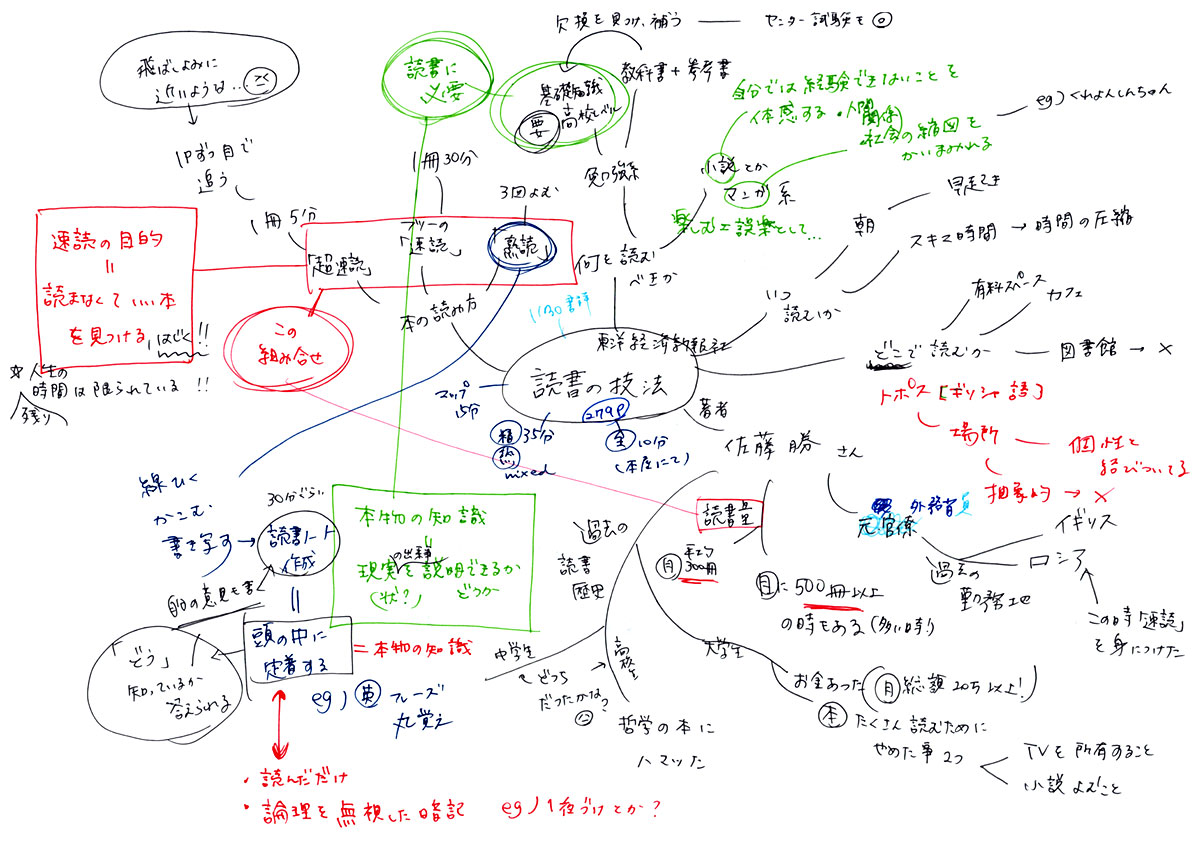 飛ばしよみに
近いようは…
1Pずつ目で
追う
1冊5分
速読の目的
=
読まなくていい本
を見つける,はじく!!
☆人生の
時間は限られている!!
残り
読書に
必要
1冊30分
3回よむ
「超速読」
フツーの
「速読」
「熟読」
本の読み方
この
組み合せ
欠損を見つけ、補う
センター試験も◎
教科書+参考書
基礎知識
要
高校レベル
勉強系
何を読む
べきか
自分では経験できないことを
体感する・人間
関係
社会の縮図を
かいまみれる
eg)くれよんしんちゃん
小説とか
マンガ系
楽しむ=誤楽として…
朝
早起き
スキマ時間→時間の圧縮
いつ
読むか
有料スペース
カフェ
どこで読むか
図書館→×
トポス[ギリシャ語]
場所
個性と
結びついてる
抽象的→×
11/30書評
東洋経済新報社
読書の技法
279P
マップ
15分
精35分
熟
mixed
全10分
(本屋にて)
著者
佐藤勝さん
元官係
外務省
イギリス
ロシア
過去の
勤務地
この時「速読」
を身につけた
読書量
月平均
300冊
月に500冊以上
の時もある(多い時)
過去の
読書
歴史
中学生
どっち
だったかな?
高校生
哲学の本に
ハマッた
大学生
お金あった(月総額20万以上!)
本たくさん読むために
やめた事2つ
TVを所有すること
小説よむこと
線ひく
かこむ
書き写す
30分ぐらい
読書ノート
作成
自分の意見を書く
=
頭の中に
定着する
=本物の知識
「どう」
知っているか
答えられる
eg)英フレーズ
丸覚え
・読んだだけ
・論理を無視した暗記 eg)1夜づけとか?
本物の知識
=
の出来事
現実を説明できるか
(状?)どうか